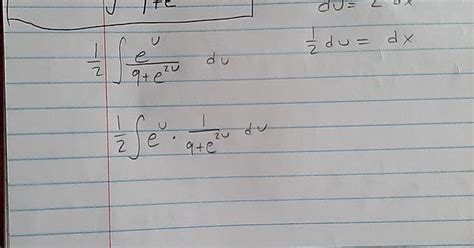 ∫ 9+e
du = 2 dx
1/2 ∫ e^u/(9+e^(2u)) du
1/2 du = dx
1/2 ∫ e^u · 1/(9+e^(2u)) du